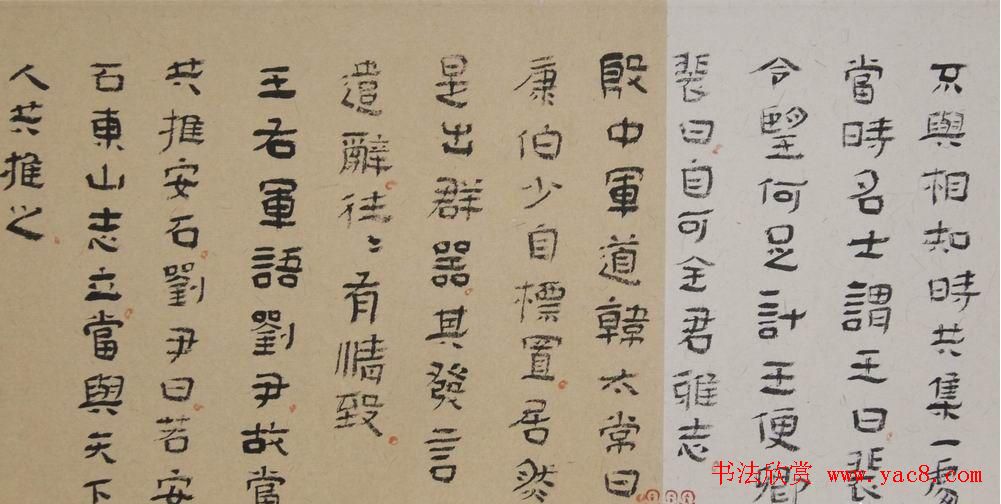 不與相知時共集一處
當時名士謂王曰裴
令望何足計王便卿
裴曰自可全君雅志
殷中軍道韓太常曰
康伯少自標置居然
是出群器其發言
遣辭往〻有情致
王右軍語劉尹故當
共推安石劉尹曰若安
石東山志立當與天下
人共推之
书法欣赏 www.yac8.com